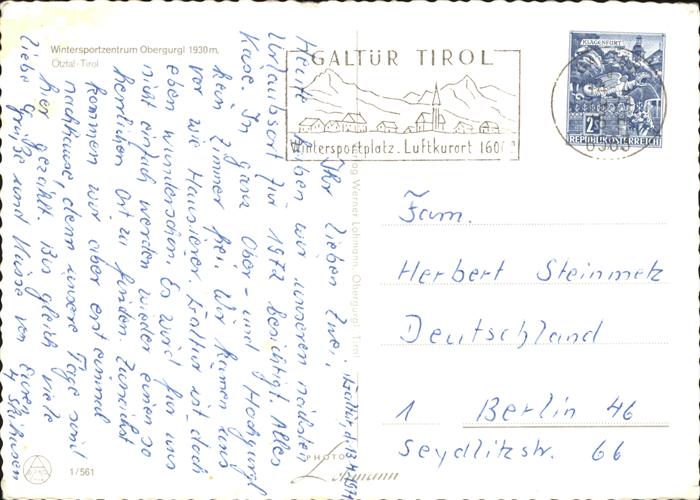 Wintersportzentrum Obergurgl 1930 m,
Ötztal-Tirol
GALTÜR TIROL
Wintersportplatz. Luftkurort 160
KLAGENFURT
2S
REPUBLIK ÖSTERREICH
6563
Galtür, d. 13.4.1971
Ihr lieben Zwei,
Heute haben wir unseren nächsten
Urlaubsort für 1972 besichtigt. Alles
Käse. In ganz Ober- und Hochgurgl
kein Zimmer frei. Wir kamen uns
vor wie Hausierer. Galtür ist doch
eben wunderschön. Es wird für uns
nicht einfach werden wieder einen so
herrlichen Ort zu finden. Zunächst
kommen wir aber erst einmal
nachhause, denn unsere Tage sind
hier gezählt. Bis gleich viele
liebe Grüße und Küsse von Euren
4 Skihasen
Verlag Werner Lohmann, Obergurgl, Tirol
Fam.
Herbert Steinmetz
Deutschland
1 Berlin 46
Seydlitzstr. 66
PHOTO
Lohmann
1/561